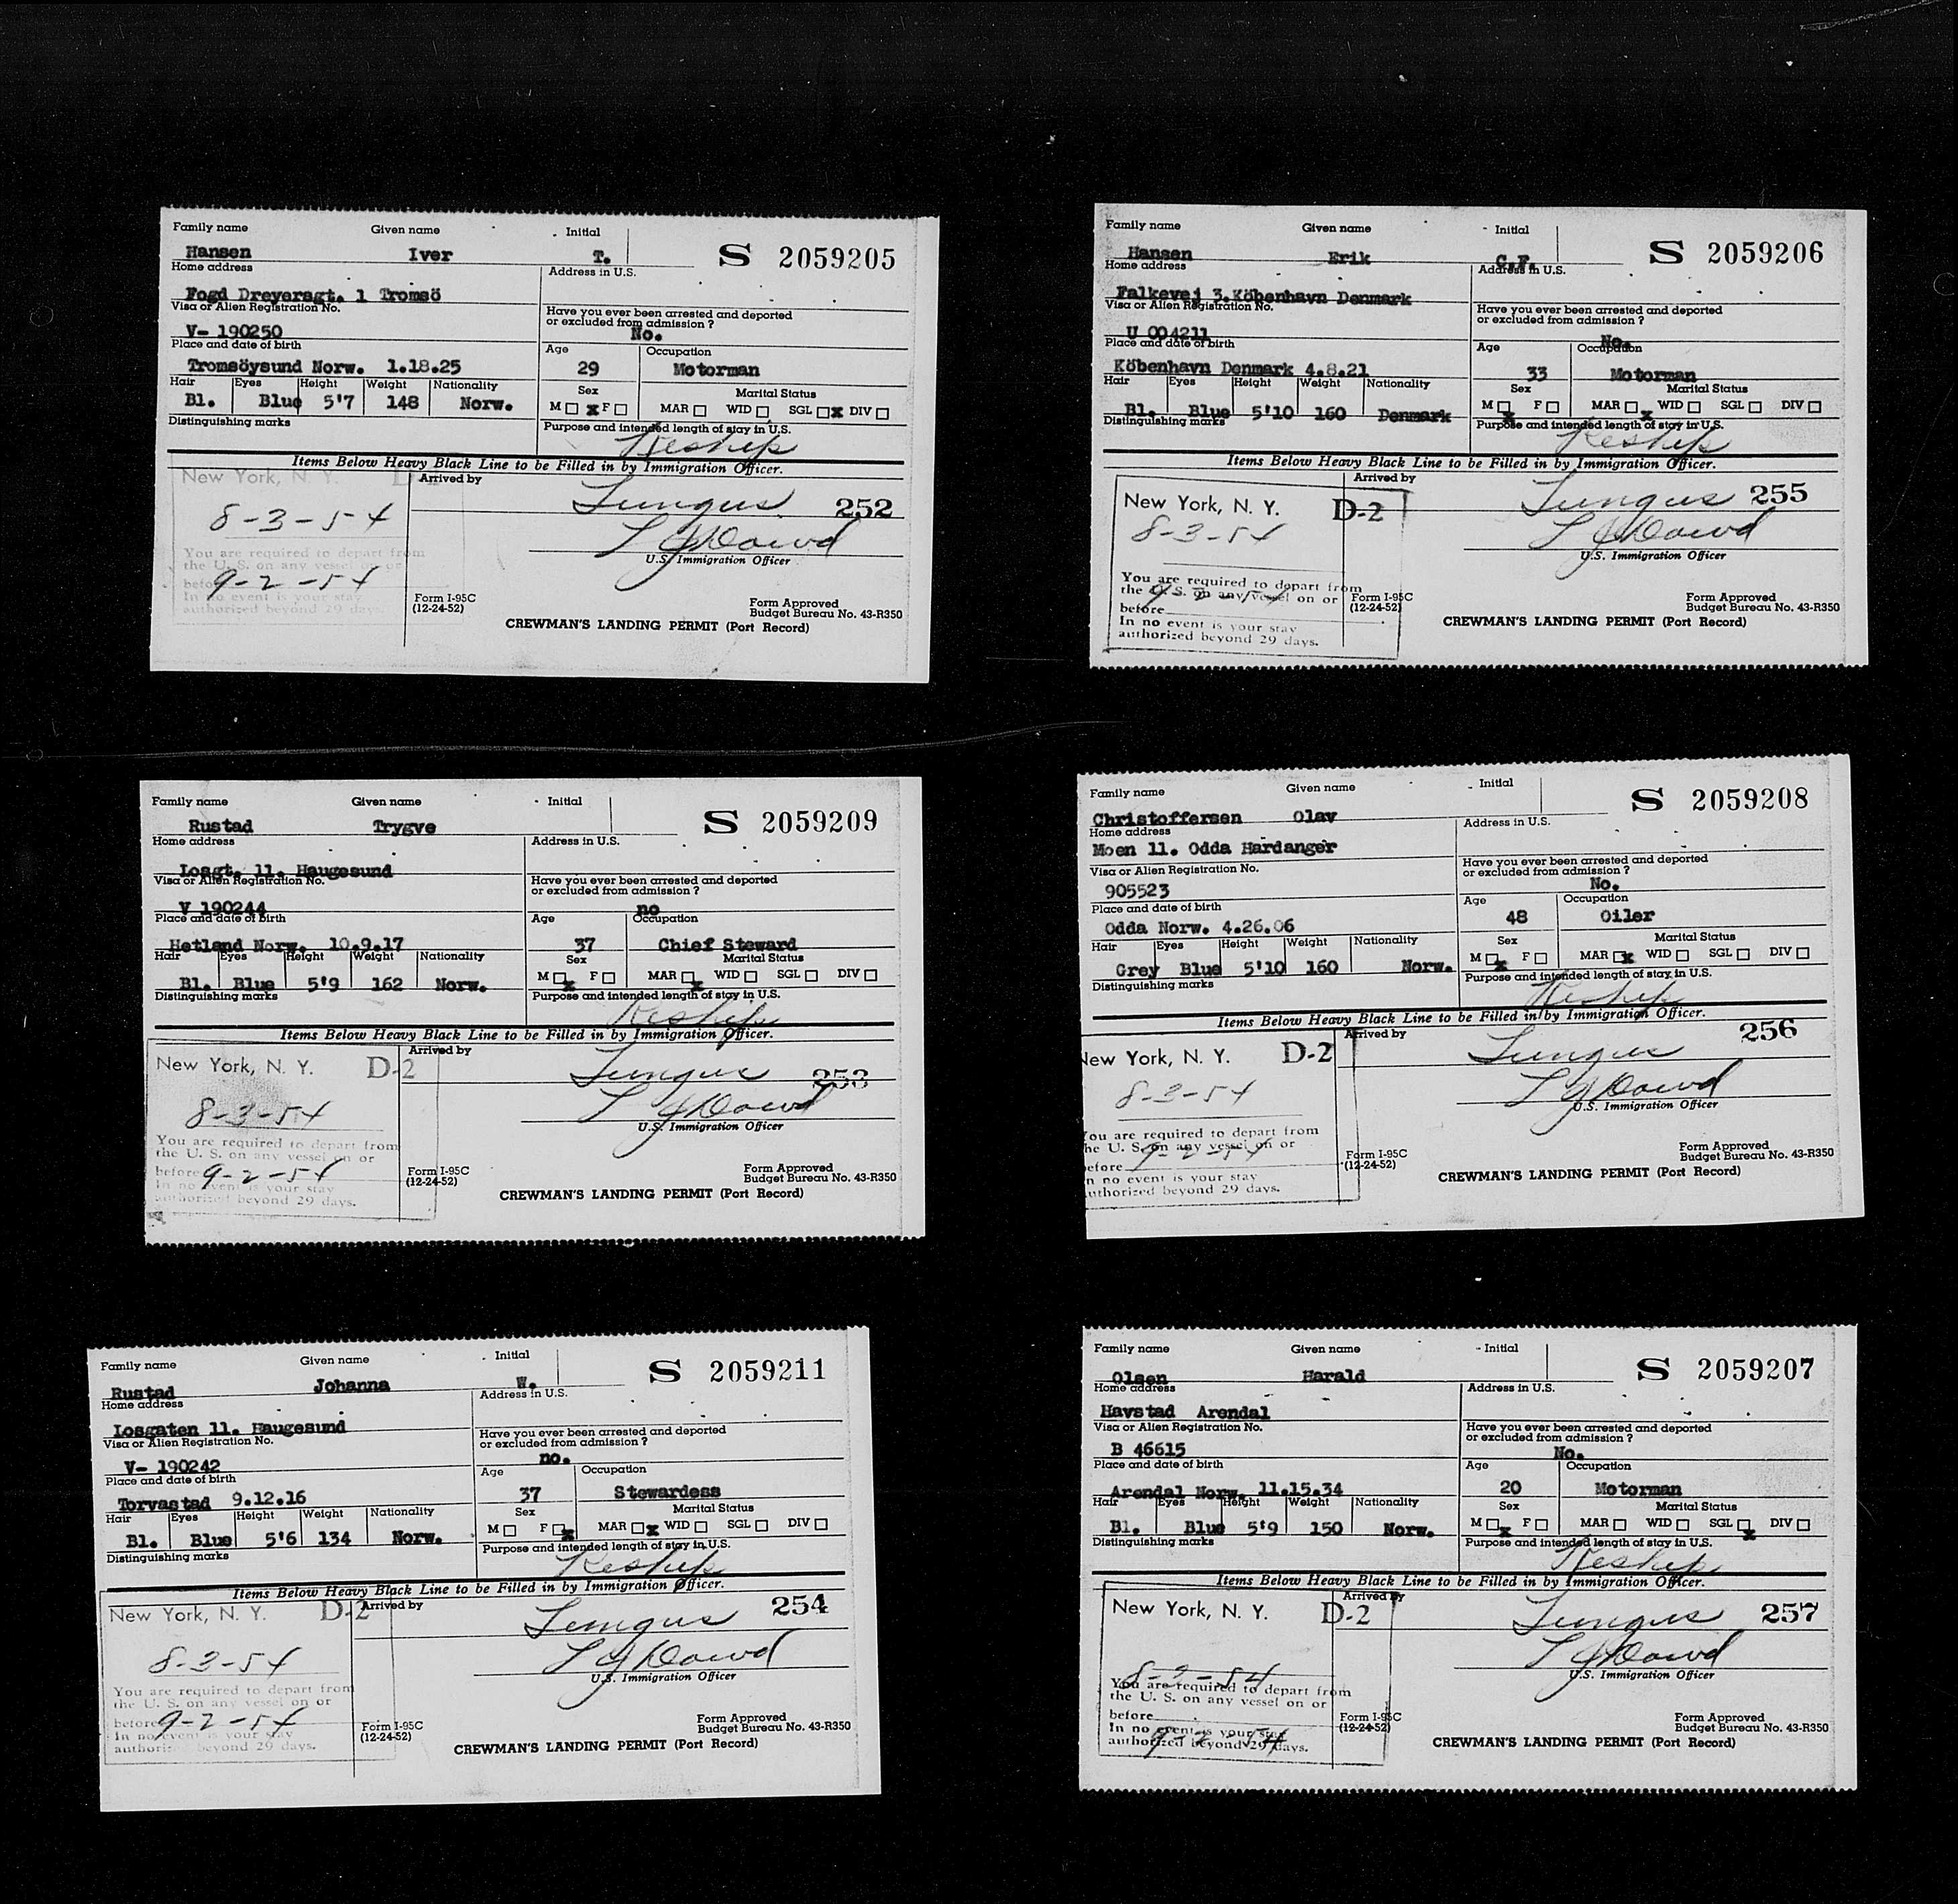 Family name Given name Initial
Hansen Iver T. S 2059205
Home address Address in U.S.
Fogd Dreyersgt. 1 Tromsö
Visa or Alien Registration No. Have you ever been arrested and deported
or excluded from admission ?
V- 190250 No.
Place and date of birth Age Occupation
Tromsöysund Norw. 1.18.25 29 Motorman
Hair Eyes Height Weight Nationality Sex Marital Status
Bl. Blue 5'7 148 Norw. M x F MAR WID SGL x DIV
Distinguishing marks Purpose and intended length of stay in U.S.
Reship
Items Below Heavy Black Line to be Filled in by Immigration Officer.
New York, N. Y. D-2 Arrived by
Tungus 252
8-3-54
You are required to depart from U.S. Immigration Officer
the U. S. on any vessel on or
before 9-2-54
In no event is your stay Form I-95C Form Approved
authorized beyond 29 days. (12-24-52) Budget Bureau No. 43-R350
CREWMAN'S LANDING PERMIT (Port Record)
Family name Given name Initial
Hansen Erik C.F. S 2059206
Home address Address in U.S.
Falkevej 3.Köbenhavn Denmark
Visa or Alien Registration No. Have you ever been arrested and deported
or excluded from admission ?
U 004211 No.
Place and date of birth Age Occupation
Köbenhavn Denmark 4.8.21 33 Motorman
Hair Eyes Height Weight Nationality Sex Marital Status
Bl. Blue 5'10 160 Denmark M x F MAR x WID SGL DIV
Distinguishing marks Purpose and intended length of stay in U.S.
Reship
Items Below Heavy Black Line to be Filled in by Immigration Officer.
New York, N. Y. D-2 Arrived by
Tungus 255
8-3-54
U.S. Immigration Officer
You are required to depart from
the U. S. on any vessel on or
before 9-2-54
In no event is your stay Form I-95C Form Approved
authorized beyond 29 days. (12-24-52) Budget Bureau No. 43-R350
CREWMAN'S LANDING PERMIT (Port Record)
Family name Given name Initial
Rustad Trygve S 2059209
Home address Address in U.S.
Losgt. 11. Haugesund
Visa or Alien Registration No. Have you ever been arrested and deported
or excluded from admission ?
V 190244 no
Place and date of birth Age Occupation
Hetland Norw. 10.9.17 37 Chief Steward
Hair Eyes Height Weight Nationality Sex Marital Status
Bl. Blue 5'9 162 Norw. M x F MAR x WID SGL DIV
Distinguishing marks Purpose and intended length of stay in U.S.
Reship
Items Below Heavy Black Line to be Filled in by Immigration Officer.
New York, N. Y. D-2 Arrived by
Tungus 253
8-3-54
U.S. Immigration Officer
You are required to depart from
the U. S. on any vessel on or
before 9-2-54
In no event is your stay Form I-95C Form Approved
authorized beyond 29 days. (12-24-52) Budget Bureau No. 43-R350
CREWMAN'S LANDING PERMIT (Port Record)
Family name Given name Initial
Christoffersen Olav S 2059208
Home address Address in U.S.
Moen 11. Odda Hardanger
Visa or Alien Registration No. Have you ever been arrested and deported
or excluded from admission ?
905523 No.
Place and date of birth Age Occupation
Odda Norw. 4.26.06 48 Oiler
Hair Eyes Height Weight Nationality Sex Marital Status
Grey Blue 5'10 160 Norw. M x F MAR x WID SGL DIV
Distinguishing marks Purpose and intended length of stay in U.S.
Reship
Items Below Heavy Black Line to be Filled in by Immigration Officer.
New York, N. Y. D-2 Arrived by
Tungus 256
8-3-54
U.S. Immigration Officer
You are required to depart from
he U. S. on any vessel on or
efore 9-2-54
n no event is your stay Form I-95C Form Approved
uthorized beyond 29 days. (12-24-52) Budget Bureau No. 43-R350
CREWMAN'S LANDING PERMIT (Port Record)
Family name Given name Initial
Rustad Johanna W. S 2059211
Home address Address in U.S.
Losgaten 11. Haugesund
Visa or Alien Registration No. Have you ever been arrested and deported
or excluded from admission ?
V- 190242 no.
Place and date of birth Age Occupation
Torvastad 9.12.16 37 Stewardess
Hair Eyes Height Weight Nationality Sex Marital Status
Bl. Blue 5'6 134 Norw. M F x MAR x WID SGL DIV
Distinguishing marks Purpose and intended length of stay in U.S.
Reship
Items Below Heavy Black Line to be Filled in by Immigration Officer.
New York, N. Y. D-2 Arrived by
Tungus 254
8-3-54
U.S. Immigration Officer
You are required to depart from
the U. S. on any vessel on or
before 9-2-54
In no event is your stay Form I-95C Form Approved
authorized beyond 29 days. (12-24-52) Budget Bureau No. 43-R350
CREWMAN'S LANDING PERMIT (Port Record)
Family name Given name Initial
Olsen Harald S 2059207
Home address Address in U.S.
Havstad Arendal
Visa or Alien Registration No. Have you ever been arrested and deported
or excluded from admission ?
B 46615 No.
Place and date of birth Age Occupation
Arendal Norw. 11.15.34 20 Motorman
Hair Eyes Height Weight Nationality Sex Marital Status
Bl. Blue 5'9 150 Norw. M x F MAR WID SGL x DIV
Distinguishing marks Purpose and intended length of stay in U.S.
Reship
Items Below Heavy Black Line to be Filled in by Immigration Officer.
New York, N. Y. D-2 Arrived by
Tungus 257
8-3-54
U.S. Immigration Officer
You are required to depart from
the U. S. on any vessel on or
before
In no event is your stay Form I-95C Form Approved
authorized beyond 29 days. (12-24-52) Budget Bureau No. 43-R350
9-2-54
CREWMAN'S LANDING PERMIT (Port Record)